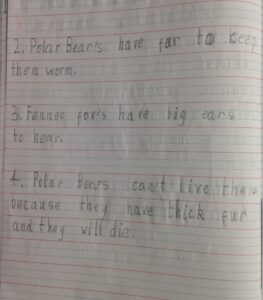 2. Polar Bear's have fur to keep
them worm.
3. Fennec fox's have big ears
to hear.
4. Polar Bears can't live there
because they have thick fur
and they will die.